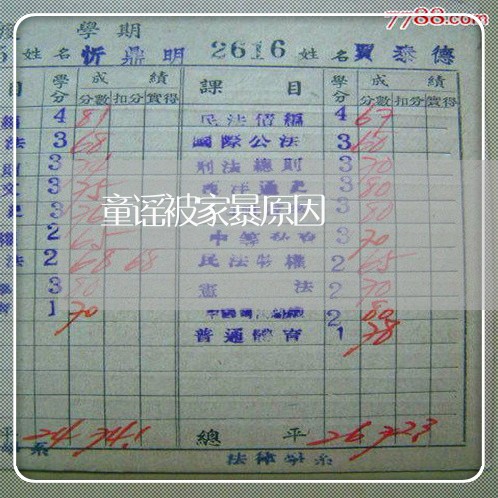 7788.com
學期
姓名 忻鼎明 2616 姓名 賈泰德
目 學分 成績 課目 學分 成績
分數 扣分 實得 分數 扣分 實得
4 81 民法債編 4 67
法 3 68 國際公法 3 60
3 刑法總則 3 70
3 75 西洋通史 3 80
3 3 80
童谣被家暴原因
2 65 3 70
法 2 68 68 民法物權 2 65
3 80 憲法 2 70
1 70 2 80
普通體育 1 78
平 24 74.1 總平 26 72.3
系 法律學系